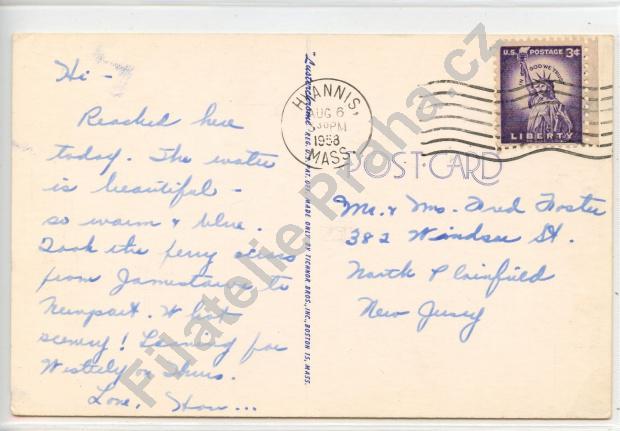 Hi -
Reached here
today. The water
is beautiful -
so warm & blue.
Took the ferry across
from Jamestown to
Newport. What
scenery! Leaving for
on Thurs.
Love,
"Lusterchrome" REG. U.S. PAT. OFF. MADE ONLY BY TICHNOR BROS., INC., BOSTON 15, MASS.
HYANNIS,
AUG 6
30 PM
1958
MASS.
U.S. POSTAGE 3¢
IN GOD WE TRUST
LIBERTY
POST-CARD
Mr. & Mrs. Fred Foster
382 Windsor St.
North Plainfield
New Jersey
Filatelie Praha.cz